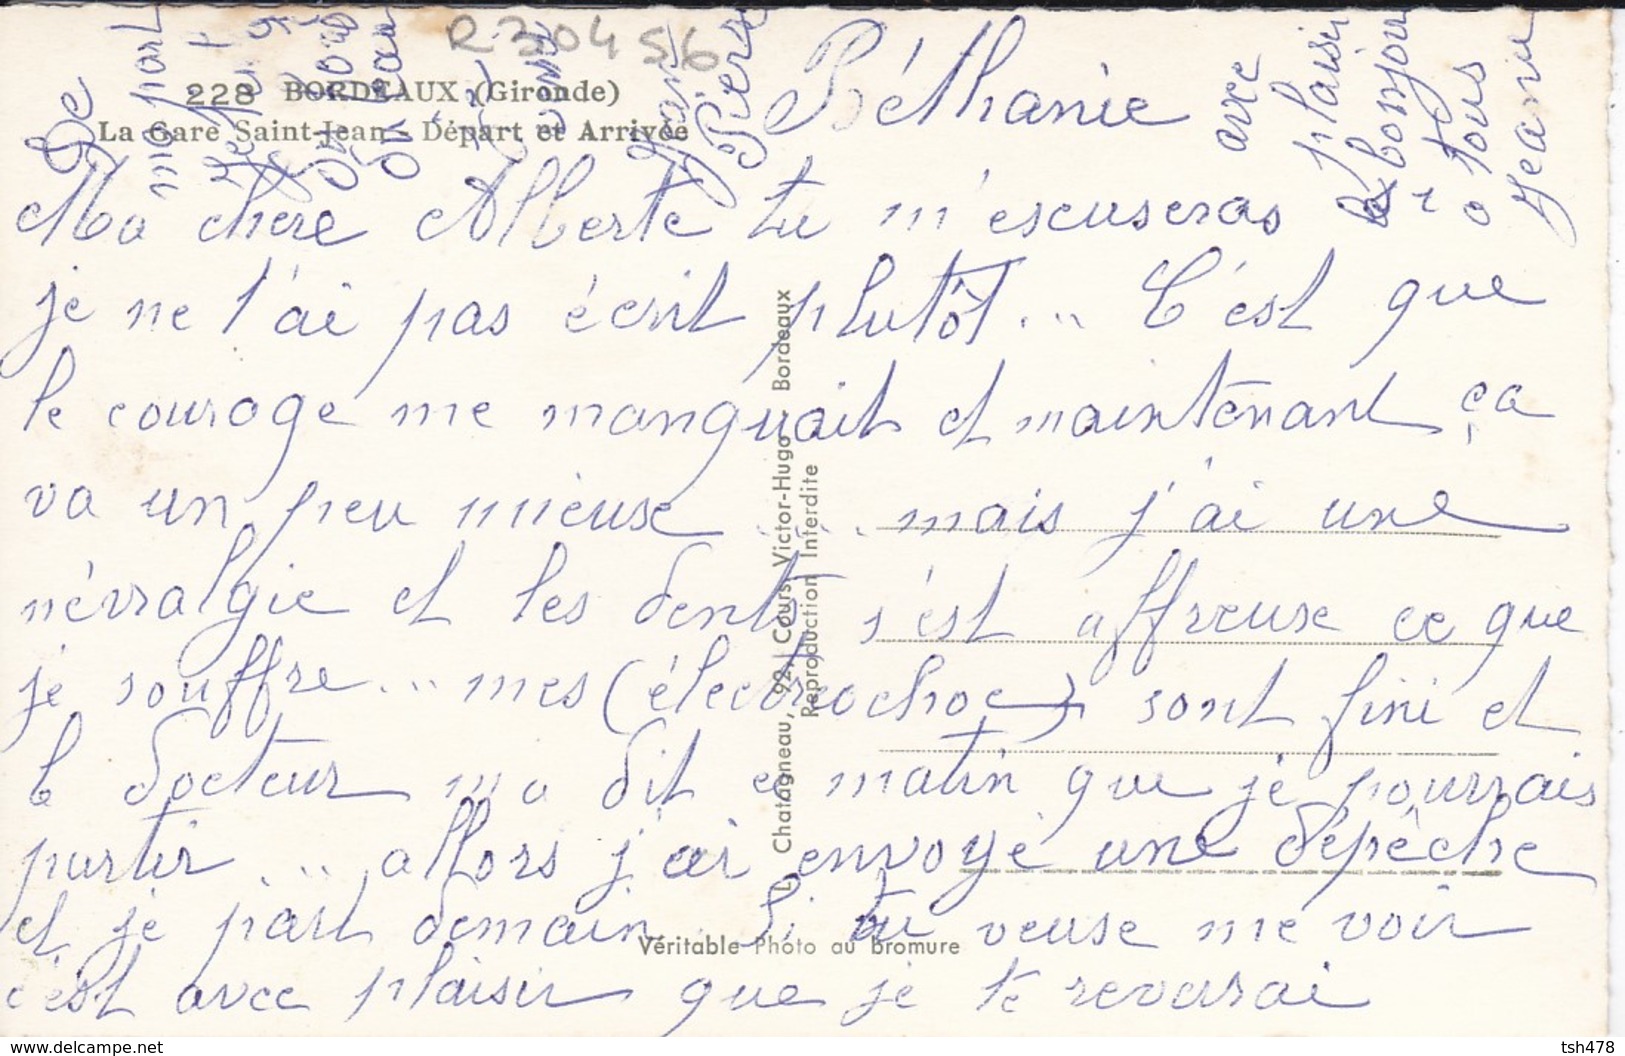 R 30456
228 BORDEAUX (Gironde)
La Gare Saint-Jean - Départ et Arrivée
Béthanie
Ma chere Alberte tu m'escuseras si
je ne t'ai pas écrit plutôt ... C'est que
le courage me manquait et maintenant ça
va un peu mieuse ... mais j'ai une
névralgie et les dents s'est affreuse ce que
je souffre ... mes (électrochoc) sont fini et
le docteur ma dit ce matin que je pourrais
partir ... allors j'ai envoyé une dépêche
et je part demain. Si tu veuse me voir
c'est avec plaisir que je te reverai
De
ma part
Jean
Pierre
avec
plaisir
bonjour
a tous
Jeanine
L. Chatagneau, 92, Cours Victor-Hugo Bordeaux
Reproduction Interdite
Véritable Photo au bromure
www.delcampe.net
tsh478